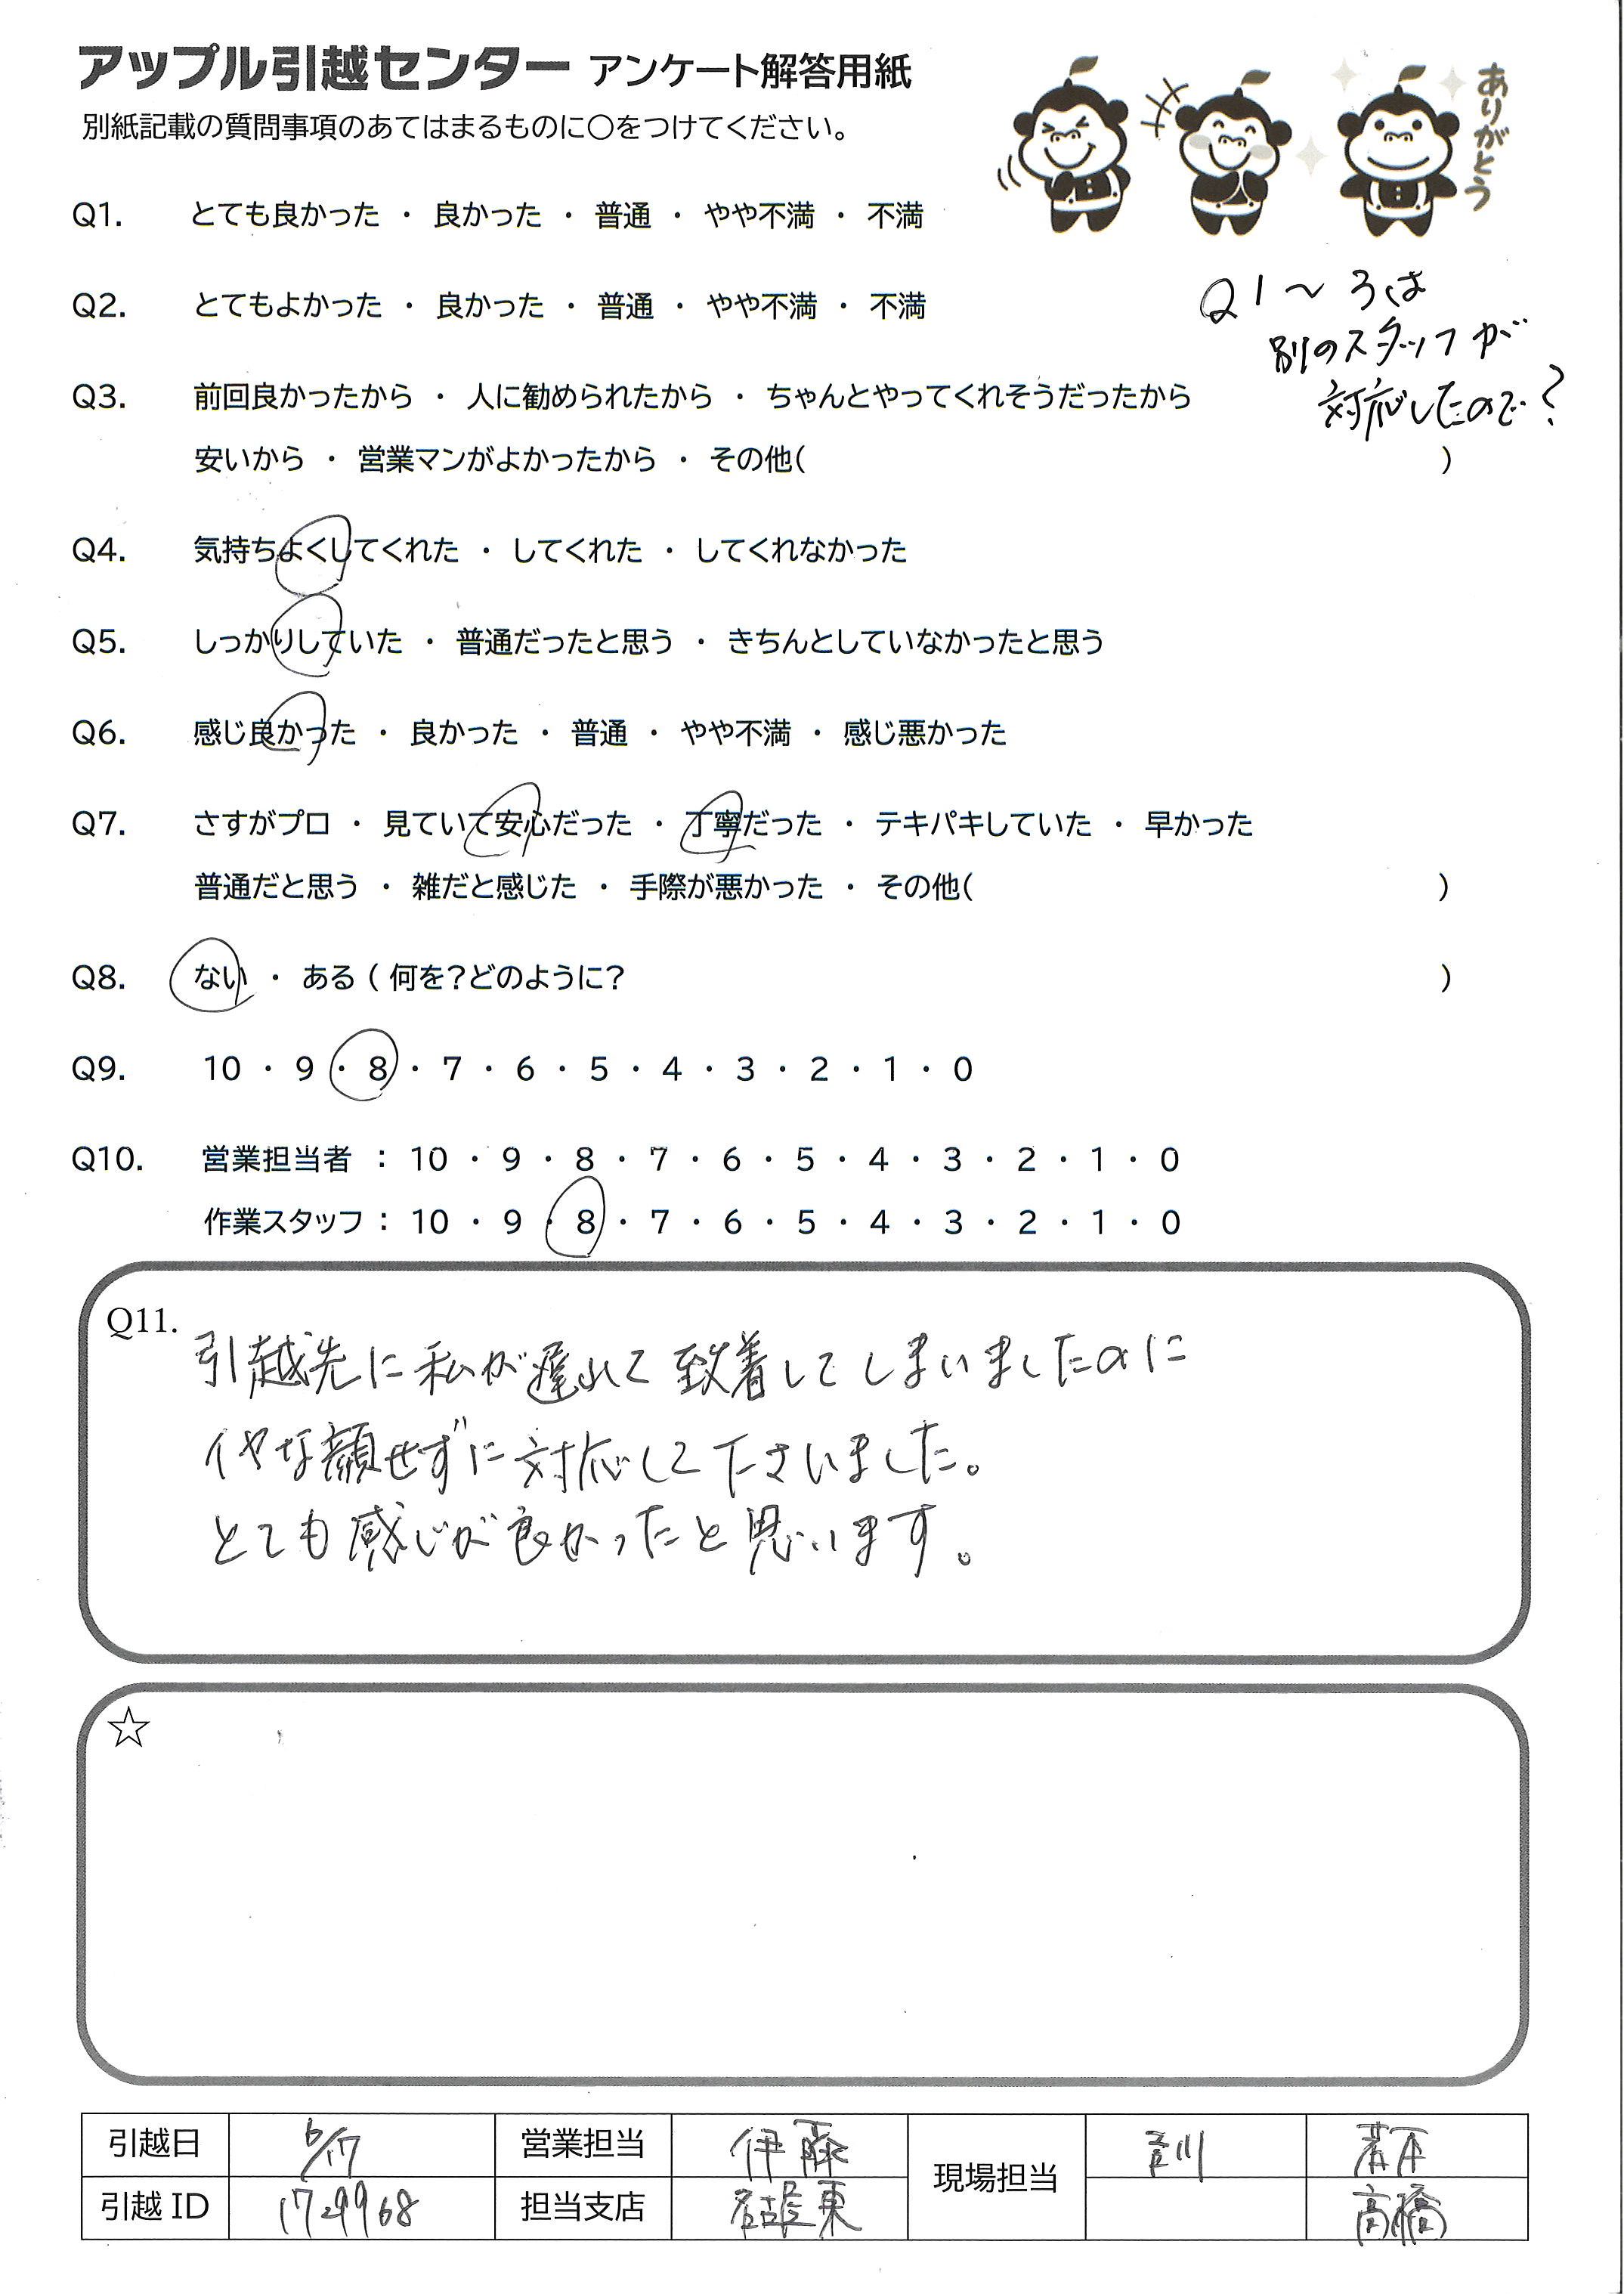 アップル引越センター アンケート解答用紙
別紙記載の質問事項のあてはまるものに〇をつけてください。
ありがとう
Q1. とても良かった ・ 良かった ・ 普通 ・ やや不満 ・ 不満
Q2. とてもよかった ・ 良かった ・ 普通 ・ やや不満 ・ 不満
Q1〜3は
別のスタッフが
対応したので?
Q3. 前回良かったから ・ 人に勧められたから ・ ちゃんとやってくれそうだったから
安いから ・ 営業マンがよかったから ・ その他( )
Q4. 気持ちよくしてくれた ・ してくれた ・ してくれなかった
Q5. しっかりしていた ・ 普通だったと思う ・ きちんとしていなかったと思う
Q6. 感じ良かった ・ 良かった ・ 普通 ・ やや不満 ・ 感じ悪かった
Q7. さすがプロ ・ 見ていて安心だった ・ 丁寧だった ・ テキパキしていた ・ 早かった
普通だと思う ・ 雑だと感じた ・ 手際が悪かった ・ その他( )
Q8. ない ・ ある ( 何を?どのように? )
Q9. 10 ・ 9 ・ 8 ・ 7 ・ 6 ・ 5 ・ 4 ・ 3 ・ 2 ・ 1 ・ 0
Q10. 営業担当者 : 10 ・ 9 ・ 8 ・ 7 ・ 6 ・ 5 ・ 4 ・ 3 ・ 2 ・ 1 ・ 0
作業スタッフ : 10 ・ 9 ・ 8 ・ 7 ・ 6 ・ 5 ・ 4 ・ 3 ・ 2 ・ 1 ・ 0
Q11. 引越先に私が遅れて到着してしまいましたのに
イヤな顔せずに対応して下さいました。
とても感じが良かったと思います。
☆
引越日 6/17 営業担当 伊藤 現場担当
引越 ID 1729968 担当支店 名古屋東 高橋